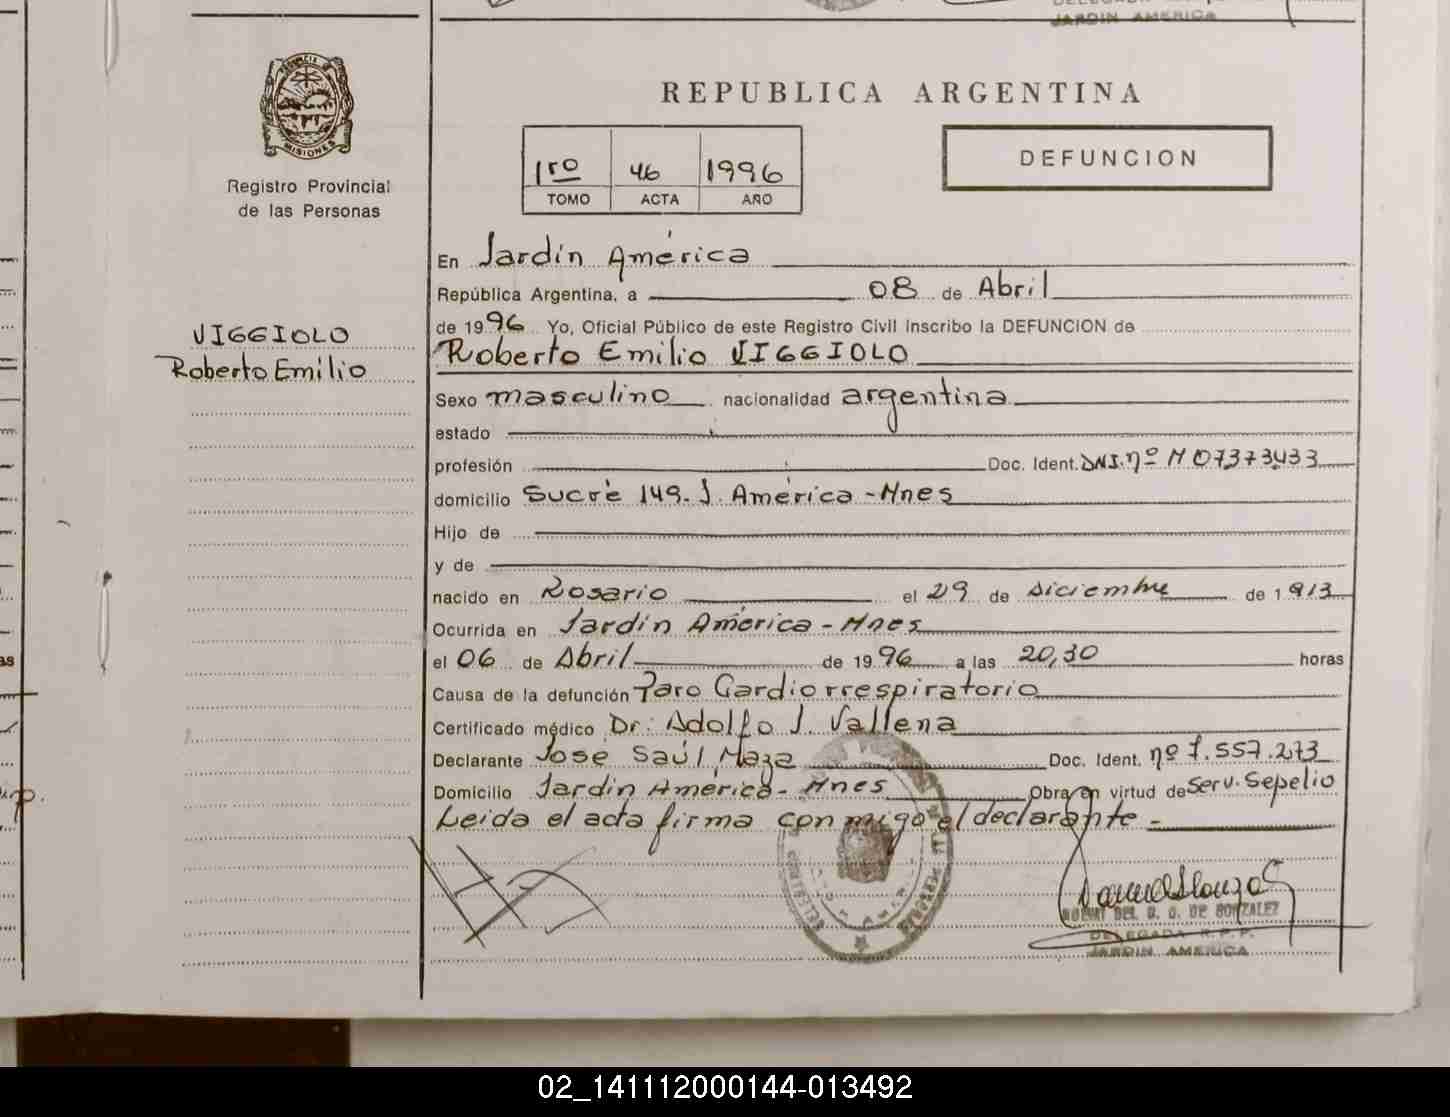 JARDIN AMERICA
PROVINCIA DE
MISIONES
Registro Provincial
de las Personas
VIGGIOLO
Roberto Emilio
REPUBLICA ARGENTINA
1ro 46 1996
TOMO ACTA AÑO
DEFUNCION
En Jardín América
República Argentina, a 08 de Abril
de 1996 Yo, Oficial Público de este Registro Civil inscribo la DEFUNCION de
Roberto Emilio VIGGIOLO
Sexo masculino nacionalidad argentina
estado
profesión Doc. Ident. DNI. nº M 07373433
domicilio Sucre 149. J. América - Mnes
Hijo de
y de
nacido en Rosario el 29 de diciembre de 1913
Ocurrida en Jardín América - Mnes
el 06 de Abril de 1996 a las 20,30 horas
Causa de la defunción Paro Cardiorrespiratorio
Certificado médico Dr: Adolfo J. Vallena
Declarante José Saúl Maza Doc. Ident. nº 7.557.273
Domicilio Jardín América - Mnes Obra en virtud de Serv. Sepelio
Leida el acta firma conmigo el declarante -
DE GONZALEZ
DELEGADA R.P.P.
JARDIN AMERICA
02_141112000144-013492